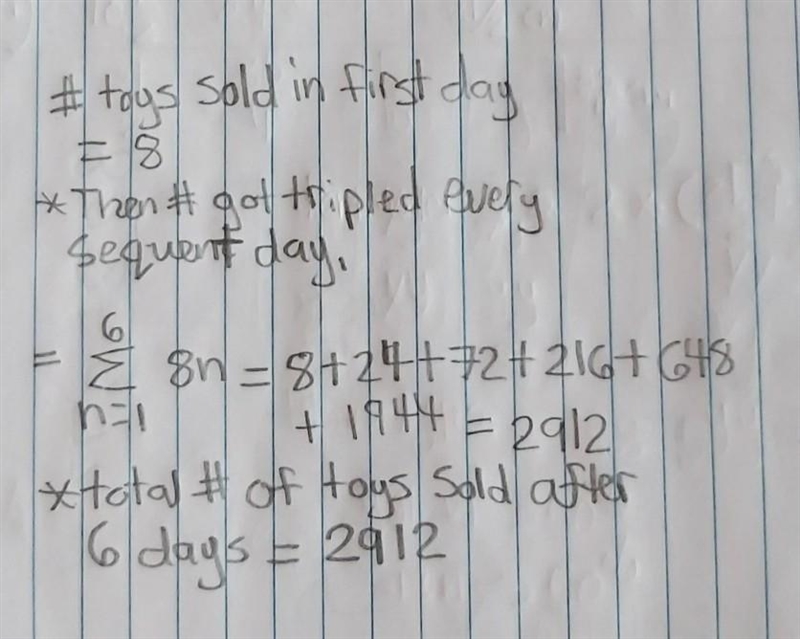 # toys sold in first day
= 8
*Then # got tripled every
sequent day.
6
= Σ 8n = 8+24+72+216+648
n=1 + 1944 = 2912
*total # of toys sold after
6 days = 2912